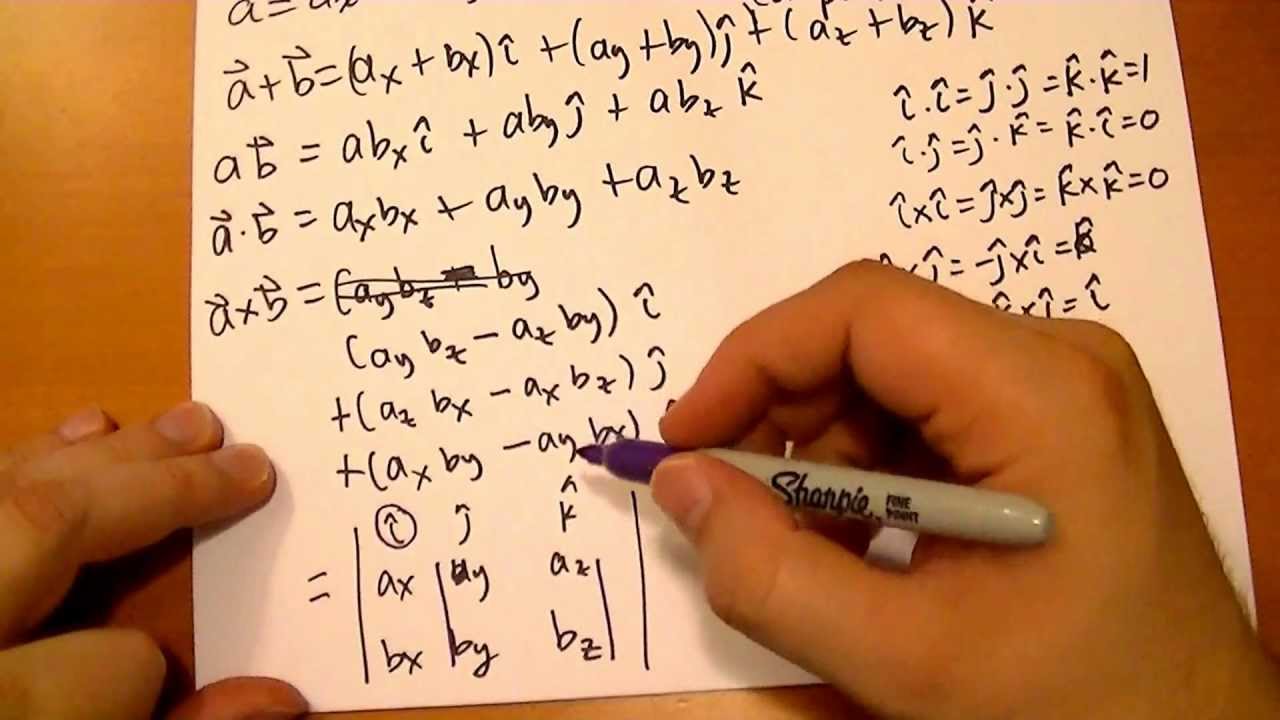 a⃗ = ax
a⃗ + b⃗ = (ax + bx)î + (ay + by)ĵ + (az + bz)k̂
ab⃗ = abxî + abyĵ + abz k̂
a⃗ · b⃗ = axbx + ayby + azbz
a⃗ × b⃗ = (aybz by
(ay bz − az by) î
+(az bx − ax bz) ĵ
+(ax by − ay bx)
î ĵ k̂
= ax ay az
bx by bz
î · î = ĵ · ĵ = k̂ · k̂ = 1
î · ĵ = ĵ · k̂ = k̂ · î = 0
î × î = ĵ × ĵ = k̂ × k̂ = 0
× ĵ = −ĵ × î = k̂
= î
Sharpie
FINE
POINT